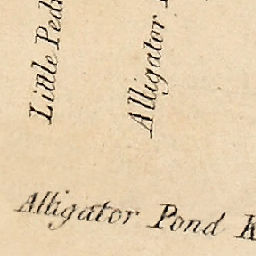 Little Ped
Alligator
Alligator Pond K